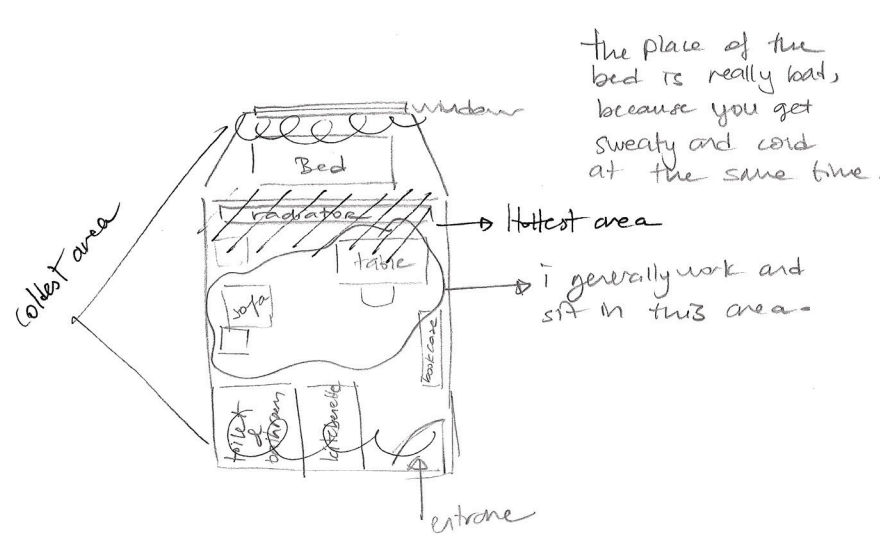 the place of the
bed is really bad,
because you get
sweaty and cold
at the same time.
window
Bed
radiator
Hottest area
Coldest area
table
i generally work and
sit in this area.
sofa
bookcase
toilet
&
bathroom
kitchenette
entrane